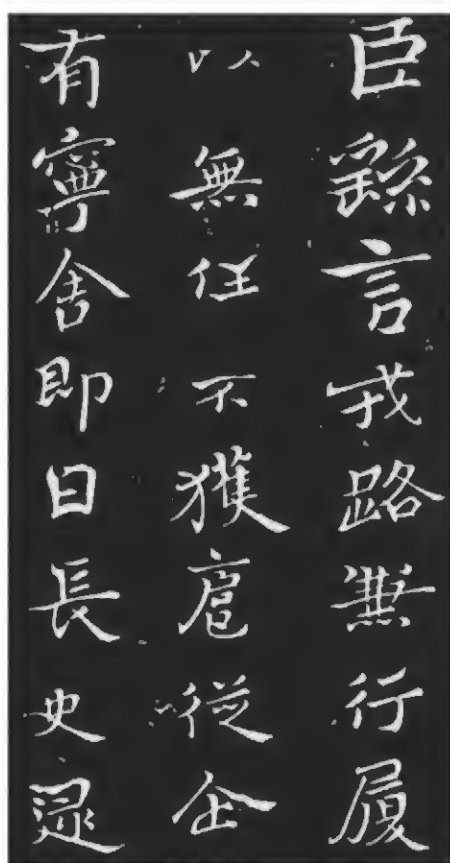 臣繇言戎路兼行履
以無任不獲扈從企
有寧舍即日長史逯